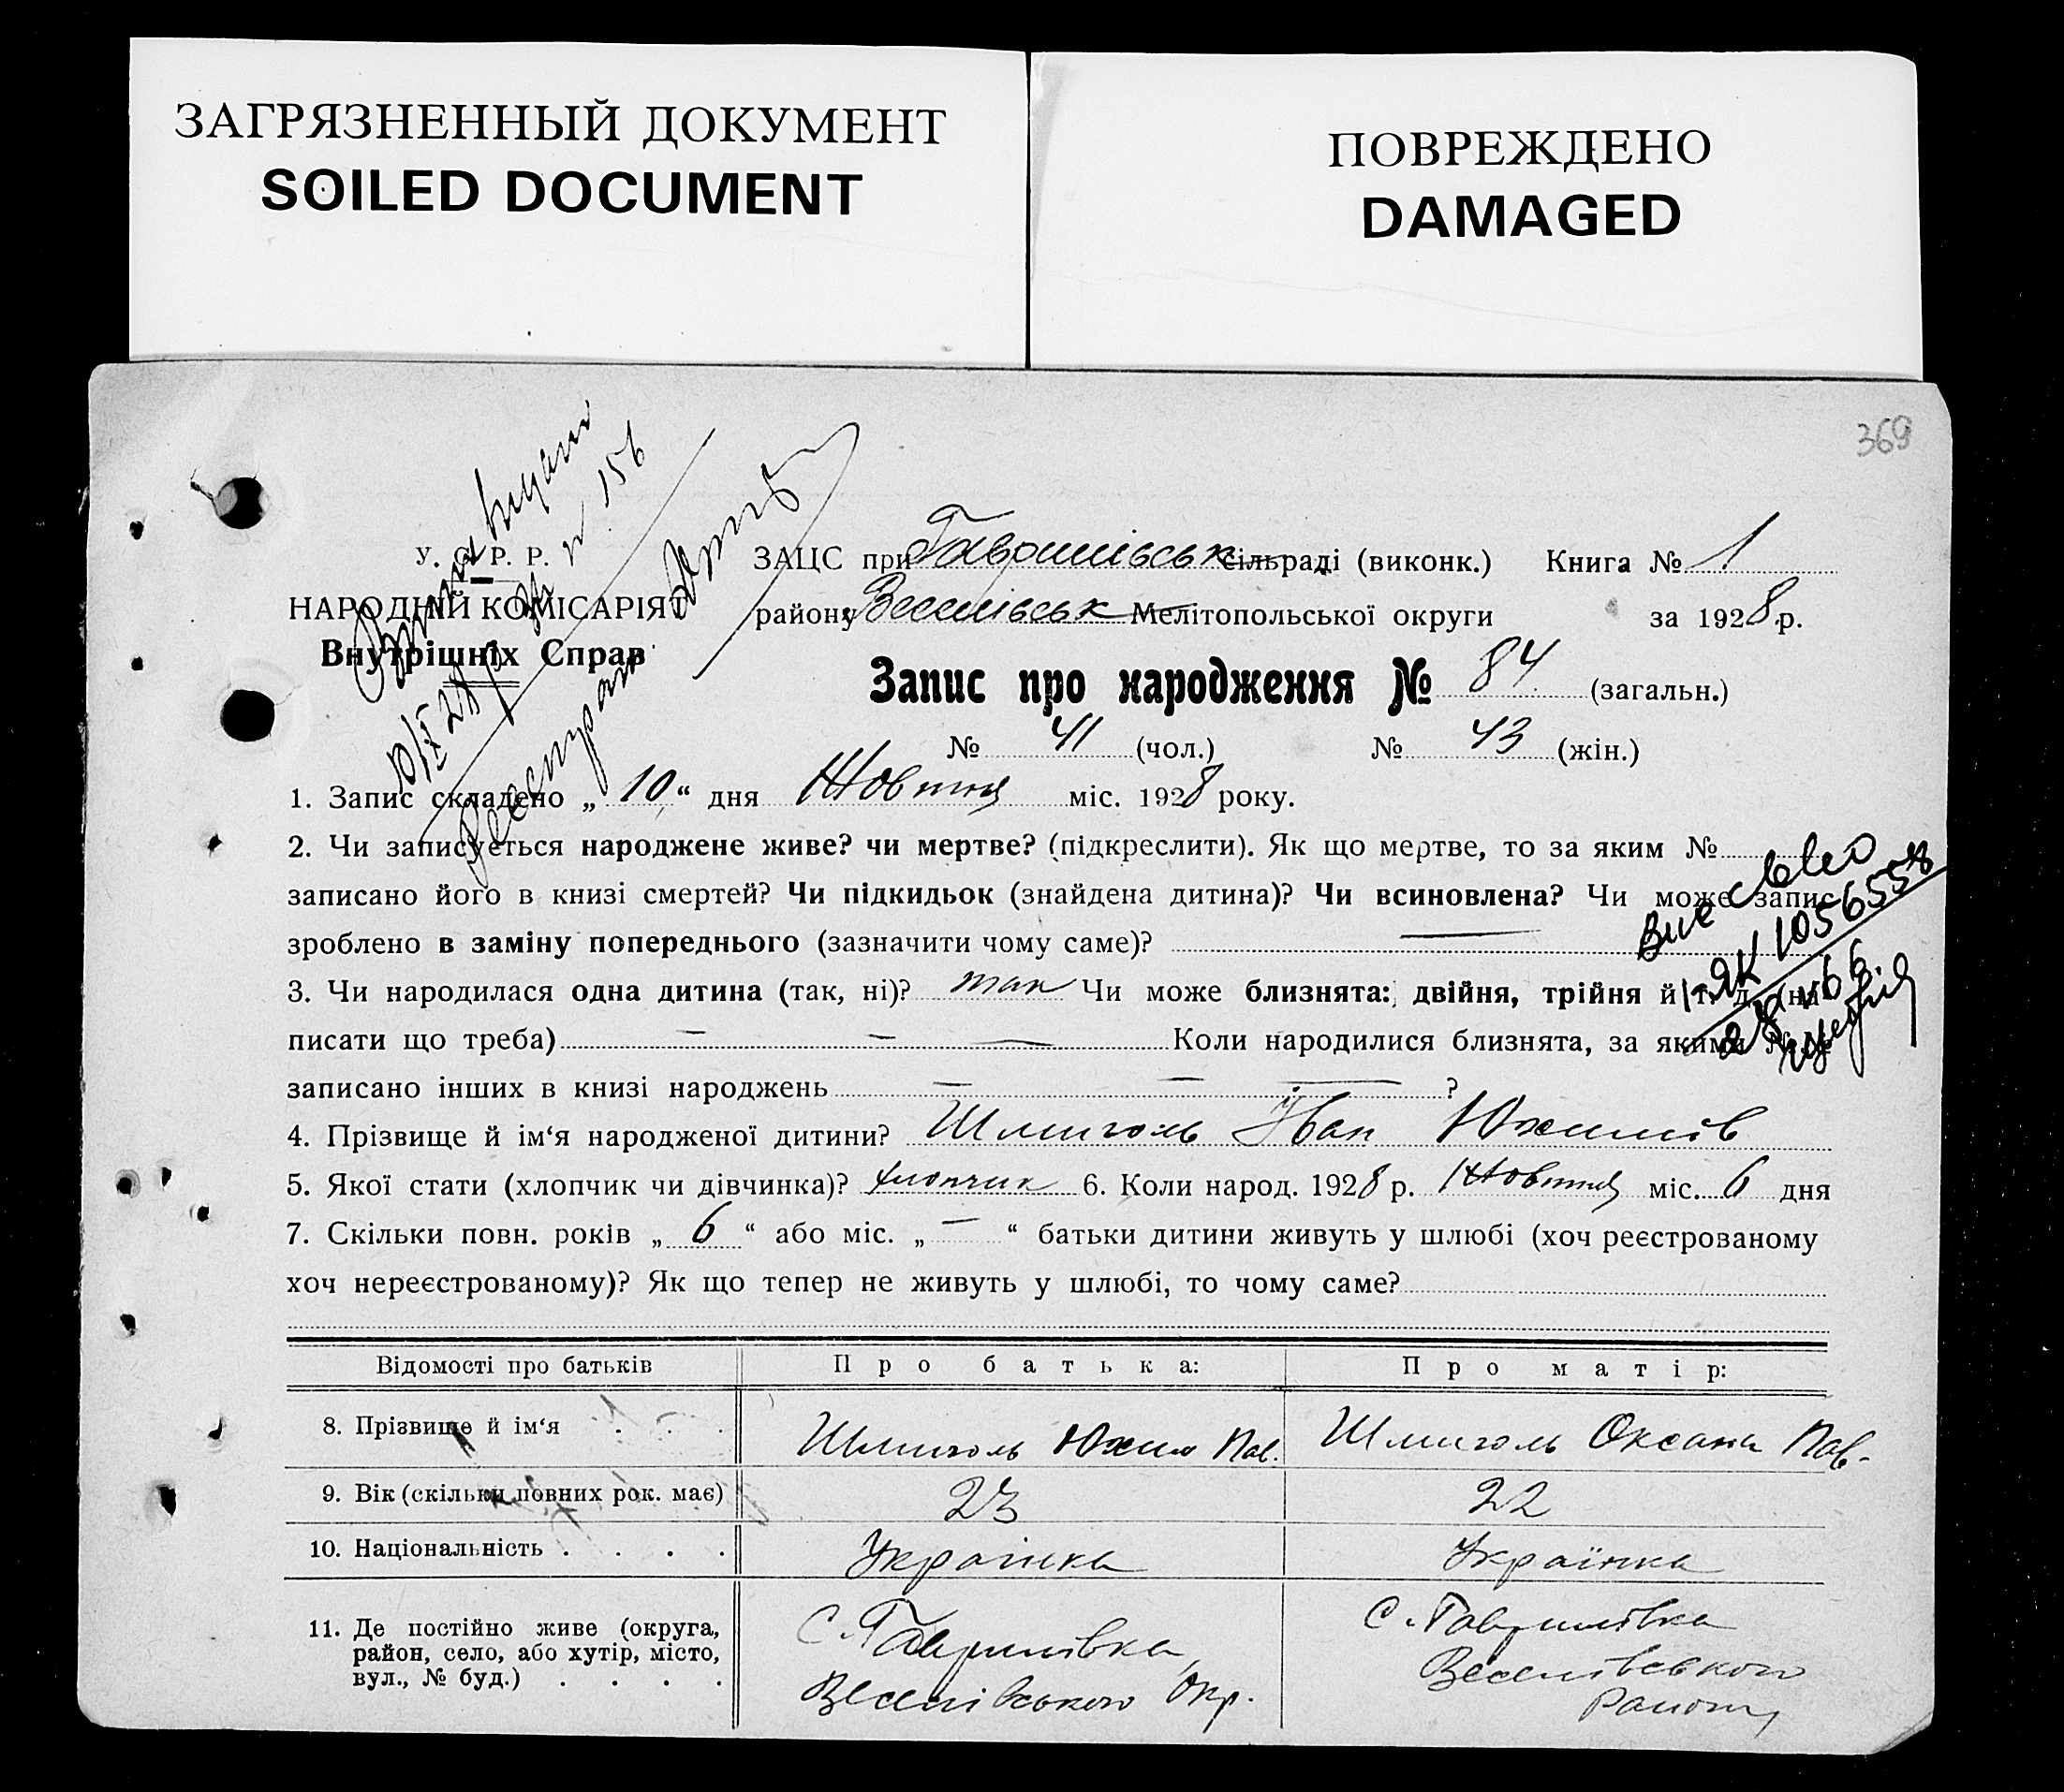 ЗАГРЯЗНЕННЫЙ ДОКУМЕНТ
SOILED DOCUMENT
ПОВРЕЖДЕНО
DAMAGED
369
У. С. Р. Р.
НАРОДНІЙ КОМІСАРІЯТ
Внутрішніх Справ
№ 156
ЗАЦС при Гаврилівськ сільраді (виконк.) Книга № 1
району Веселівськ Мелітопольської округи за 1928 р.
Запис про народження № 84 (загальн.)
№ 41 (чол.) № 43 (жін.)
1. Запис складено „ 10 “ дня Жовтня міс. 1928 року.
2. Чи записується народжене живе? чи мертве? (підкреслити). Як що мертве, то за яким №
записано його в книзі смертей? Чи підкидьок (знайдена дитина)? Чи всиновлена? Чи може запис
зроблено в заміну попереднього (зазначити чому саме)? —
3. Чи народилася одна дитина (так, ні)? так Чи може близнята: двійня, трійня й т. д. (на-
писати що треба) — — — Коли народилися близнята, за якими №№
записано інших в книзі народжень — — — ?
ЯК 1056558
4. Прізвище й ім‘я народженої дитини? Шмиголь Іван Юхимів
5. Якої стати (хлопчик чи дівчинка)? хлопчик 6. Коли народ. 1928 р. Жовтня міс. 6 дня
7. Скільки повн. років „ 6 “ або міс. „ — “ батьки дитини живуть у шлюбі (хоч реєстрованому
хоч нереєстрованому)? Як що тепер не живуть у шлюбі, то чому саме?
Відомості про батьків Про батька: Про матір:
8. Прізвище й ім‘я . . . Шмиголь Юхим Пав. Шмиголь Оксана Пав.
9. Вік (скільки повних рок. має) 23 22
10. Національність . . . . Українка Українка
11. Де постійно живе (округа,
район, село, або хутір, місто,
вул., № буд.) . . . .
С. Гаврилівка,
Веселівського Окр.
С. Гаврилівка
Веселівського
Району